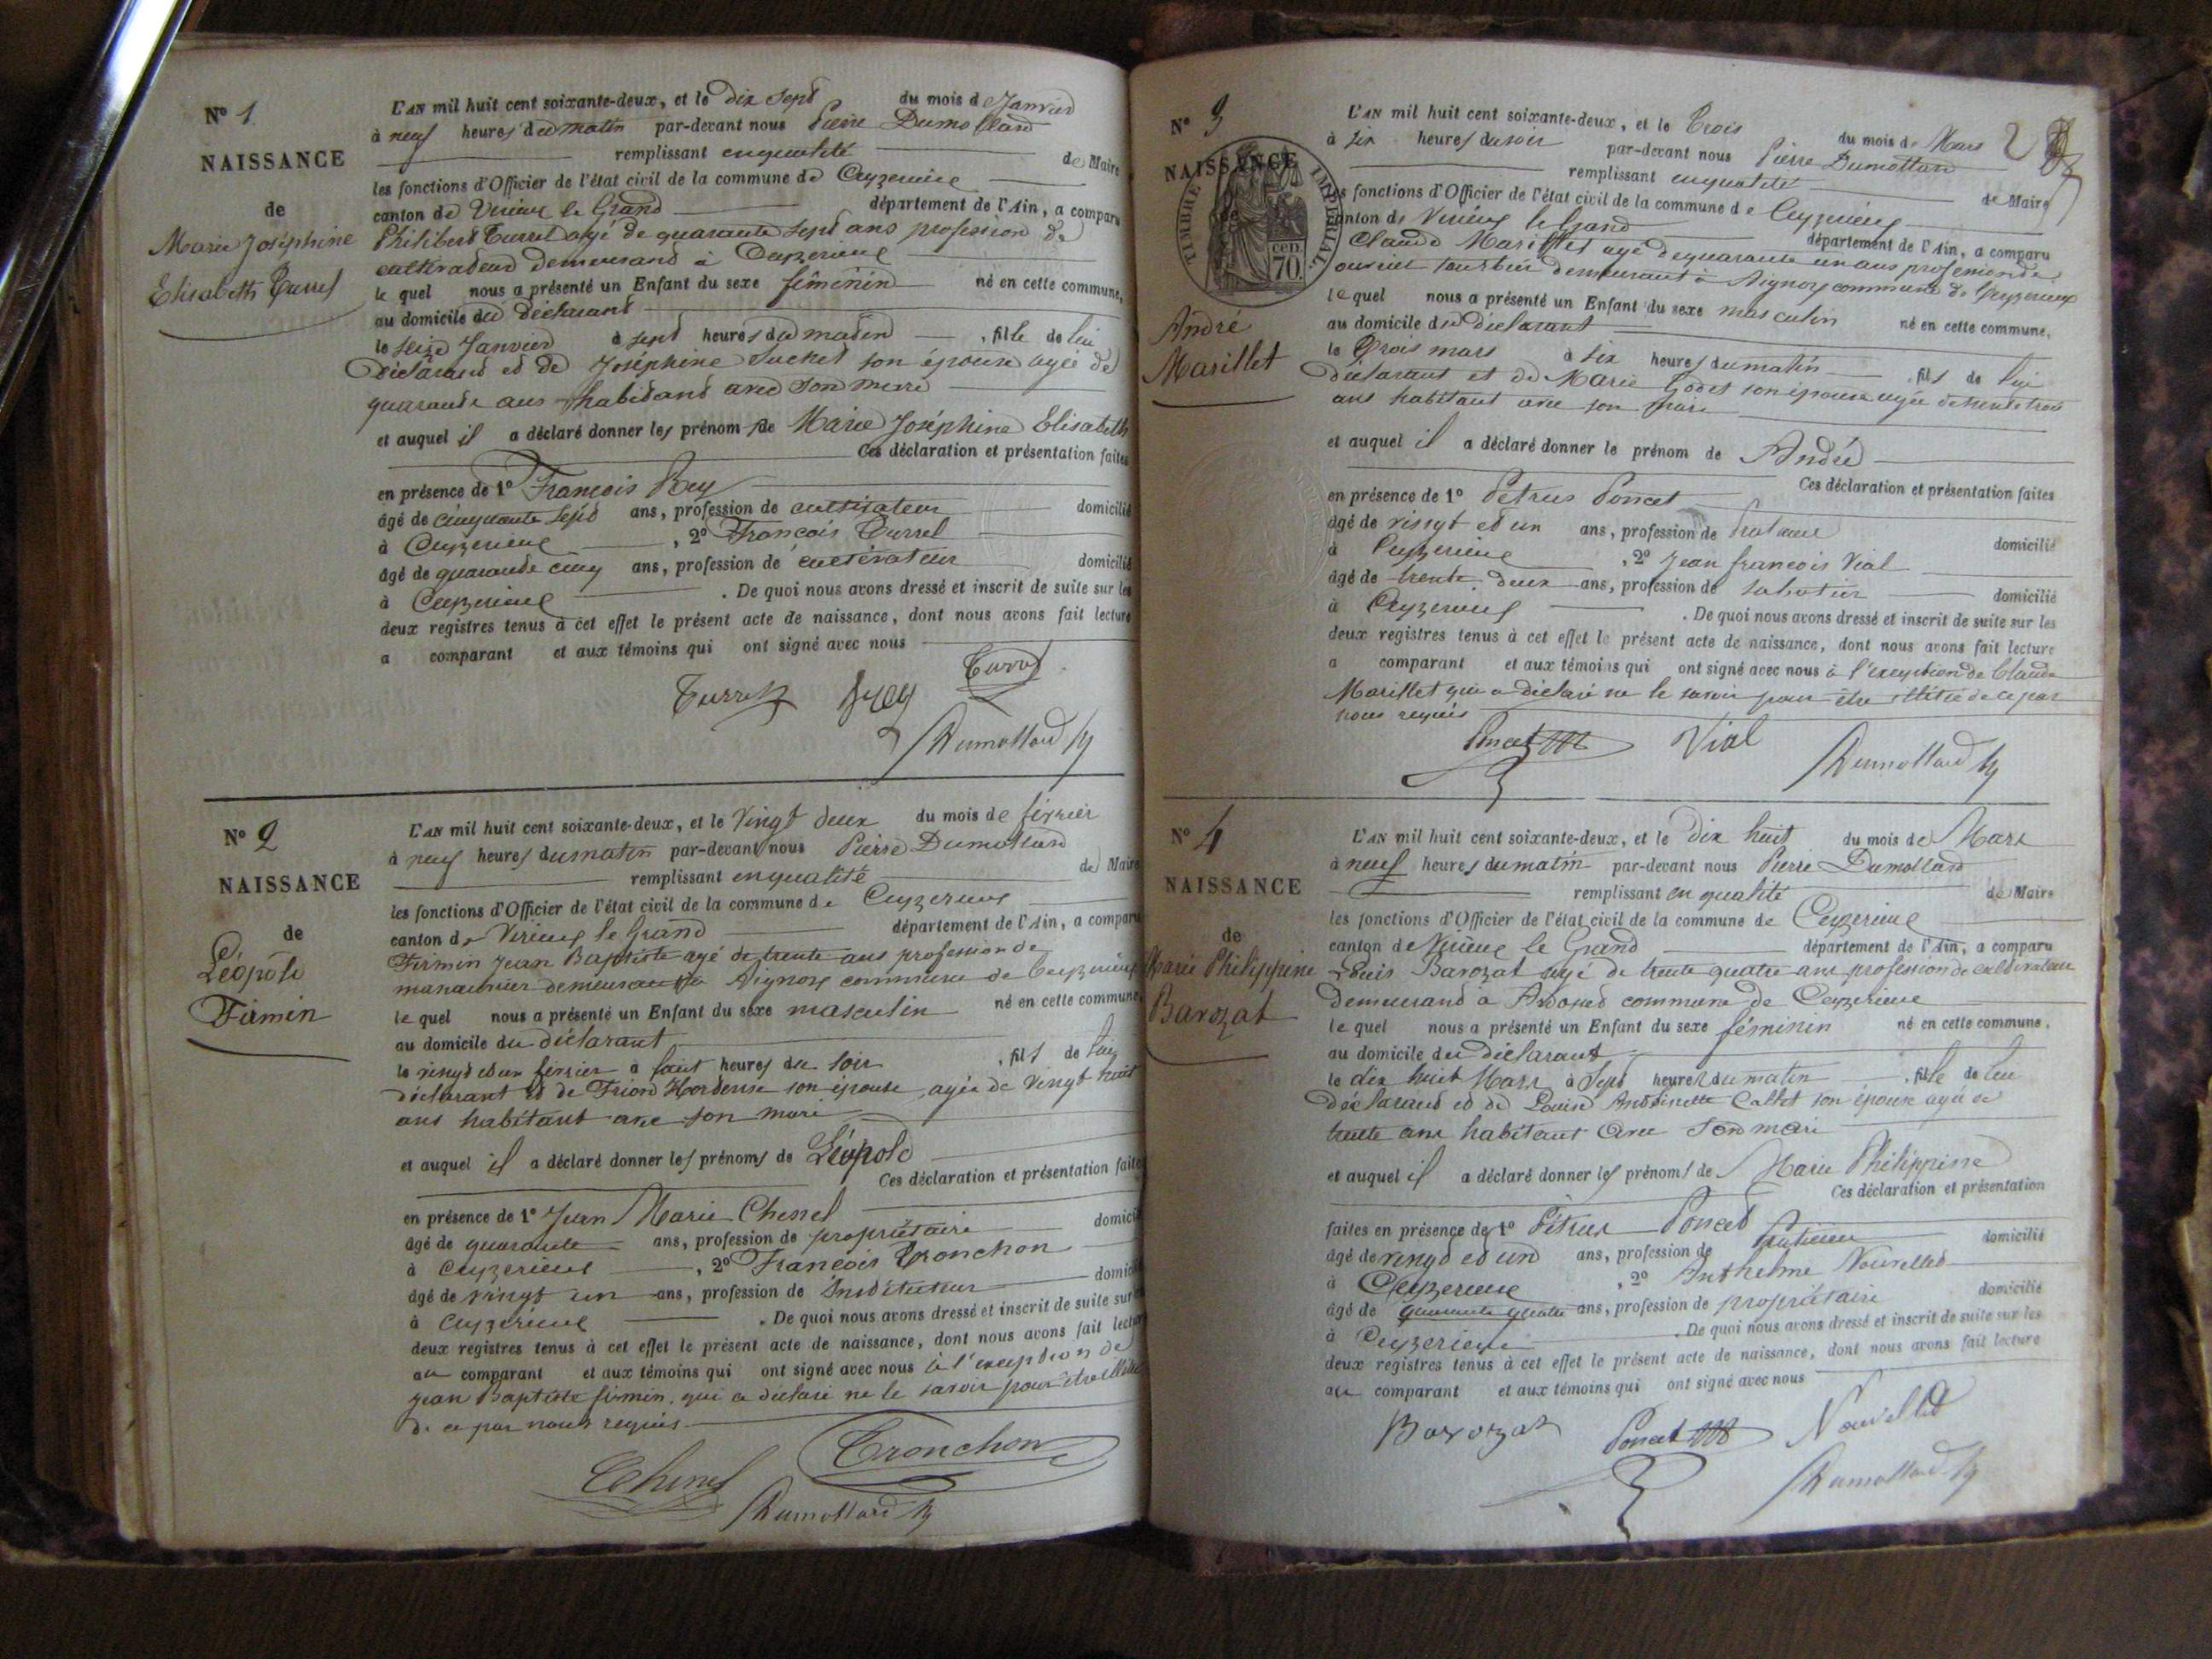 N° 1
NAISSANCE
de
Marie Joséphine
Elisabeth Turrel
L'AN mil huit cent soixante-deux, et le dix sept du mois de Janvier
à neuf heures du matin par-devant nous Pierre Dumollard
remplissant en qualité de Maire
les fonctions d'Officier de l'état civil de la commune de Ceyzerieu
canton de Virieu le Grand département de l'Ain, a comparu
Philibert Turrel agé de quarante sept ans profession de
cultivateur demeurant à Ceyzerieu
le quel nous a présenté un Enfant du sexe féminin né en cette commune,
au domicile du déclarant
le seize Janvier à sept heures du matin , fille de lui
déclarant et de Joséphine Suchet son épouse agée de
quarante ans habitant avec son mari
et auquel il a déclaré donner les prénom de Marie Joséphine Elisabeth
Ces déclaration et présentation faites
en présence de 1° François Rey
âgé de cinquante sept ans, profession de cultivateur domicilié
à Ceyzerieu , 2° François Turrel
âgé de quarante cinq ans, profession de cultivateur domicilié
à Ceyzerieu . De quoi nous avons dressé et inscrit de suite sur les
deux registres tenus à cet effet le présent acte de naissance, dont nous avons fait lecture
a comparant et aux témoins qui ont signé avec nous
Turrel Rey Turrel
Dumollard
N° 2
NAISSANCE
de
Léopold
Firmin
L'AN mil huit cent soixante-deux, et le Vingt deux du mois de février
à neuf heures du matin par-devant nous Pierre Dumollard
remplissant en qualité de Maire
les fonctions d'Officier de l'état civil de la commune de Ceyzerieu
canton de Virieu le Grand département de l'Ain, a comparu
Firmin Jean Baptiste agé de trente ans profession de
manoeuvrier demeurant à Aignoz commune de Ceyzerieu
le quel nous a présenté un Enfant du sexe masculin né en cette commune
au domicile du déclarant
le vingt et un février à huit heures du soir , fils de lui
déclarant et de Hordense son épouse agée de vingt huit
ans habitant avec son mari
et auquel il a déclaré donner les prénoms de Léopold
Ces déclaration et présentation faites
en présence de 1° Jean Marie Chesnel
âgé de quarante ans, profession de propriétaire domicilié
à Ceyzerieu , 2° François Tronchon
âgé de vingt un ans, profession de Instituteur domicilié
à Ceyzerieu . De quoi nous avons dressé et inscrit de suite sur
deux registres tenus à cet effet le présent acte de naissance, dont nous avons fait lecture
au comparant et aux témoins qui ont signé avec nous à l'exception de
Jean Baptiste firmin qui a déclaré ne le savoir pour être illitéré
de ce par nous requis
Tronchon
Chesnel
Dumollard
N° 3
NAISSANCE
de
TIMBRE IMPERIAL
70 cen.
André
Marillet
2
L'AN mil huit cent soixante-deux, et le Trois du mois de Mars
à six heures du soir par-devant nous Pierre Dumollard
remplissant en qualité de Maire
les fonctions d'Officier de l'état civil de la commune de Ceyzerieu
canton de Virieu le Grand département de l'Ain, a comparu
Claude Marillet agé de quarante un ans profession de
ouvrier tourbier demeurant à Aignoz commune de Ceyzerieu
le quel nous a présenté un Enfant du sexe masculin né en cette commune,
au domicile du déclarant
le Trois mars à six heures du matin , fils de lui
déclarant et de Marie Godet son épouse agée de trente trois
ans habitant avec son mari
et auquel il a déclaré donner le prénom de André
Ces déclaration et présentation faites
en présence de 1° Petrus Poncet
âgé de vingt et un ans, profession de Praticien domicilié
à Ceyzerieu , 2° Jean françois Vial
âgé de trente deux ans, profession de sabotier domicilié
à Ceyzerieu . De quoi nous avons dressé et inscrit de suite sur les
deux registres tenus à cet effet le présent acte de naissance, dont nous avons fait lecture
a comparant et aux témoins qui ont signé avec nous à l'exception de Claude
Marillet qui a déclaré ne le savoir pour être illitéré de ce par
nous requis
Poncet Vial Dumollard
N° 4
NAISSANCE
de
Marie Philippine
Barozat
L'AN mil huit cent soixante-deux, et le dix huit du mois de Mars
à neuf heures du matin par-devant nous Pierre Dumollard
remplissant en qualité de Maire
les fonctions d'Officier de l'état civil de la commune de Ceyzerieu
canton de Virieu le Grand département de l'Ain, a comparu
Louis Barozat agé de trente quatre ans profession de cultivateur
demeurant à Ardosset commune de Ceyzerieu
le quel nous a présenté un Enfant du sexe féminin né en cette commune,
au domicile du déclarant
le dix huit Mars à Sept heures du matin , fille de lui
déclarant et de Louise Antoinette Callet son épouse agée de
trente ans habitant avec son mari
et auquel il a déclaré donner les prénoms de Marie Philippine
Ces déclaration et présentation
faites en présence de 1° Pétrus Poncet
âgé de vingt et un ans, profession de Praticien domicilié
à Ceyzerieu , 2° Anthelme Nouvellet
âgé de quarante quatre ans, profession de propriétaire domicilié
à Ceyzerieu . De quoi nous avons dressé et inscrit de suite sur les
deux registres tenus à cet effet le présent acte de naissance, dont nous avons fait lecture
au comparant et aux témoins qui ont signé avec nous
Barozat Poncet Nouvellet
Dumollard